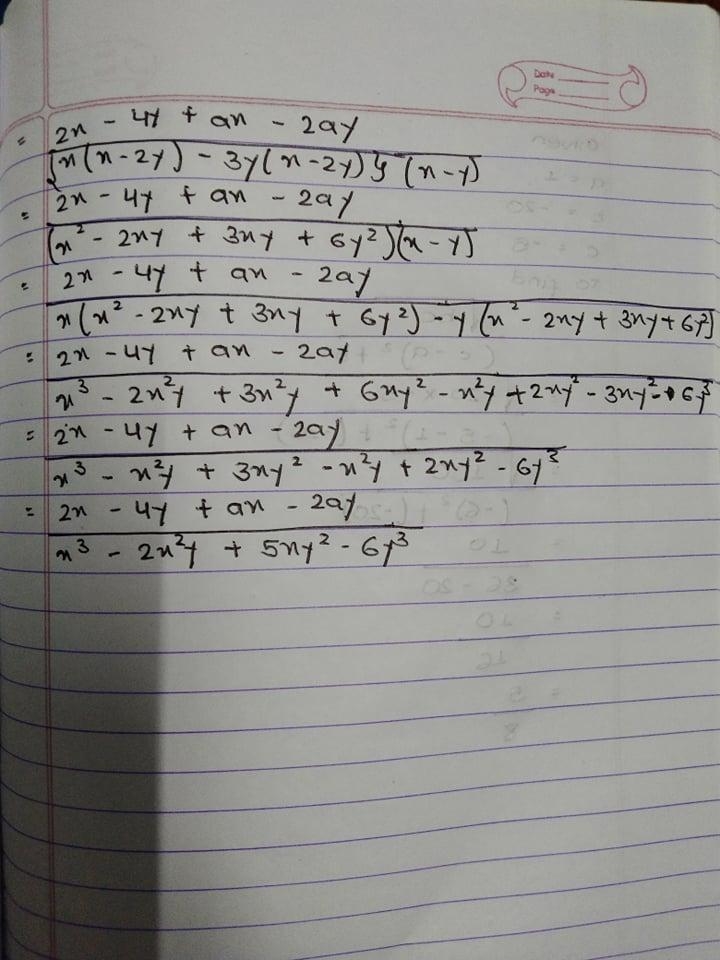 Date
Page
= 2x - 4y + ax - 2ay
{x(x-2y) - 3y(x-2y)} (x-y)
= 2x - 4y + ax - 2ay
(x² - 2xy + 3xy + 6y²)(x-y)
= 2x - 4y + ax - 2ay
x(x² - 2xy + 3xy + 6y²) - y(x² - 2xy + 3xy + 6y²)
= 2x - 4y + ax - 2ay
x³ - 2x²y + 3x²y + 6xy² - x²y + 2xy² - 3xy² - 6y³
= 2x - 4y + ax - 2ay
x³ - x²y + 3xy² - x²y + 2xy² - 6y³
= 2x - 4y + ax - 2ay
x³ - 2x²y + 5xy² - 6y³